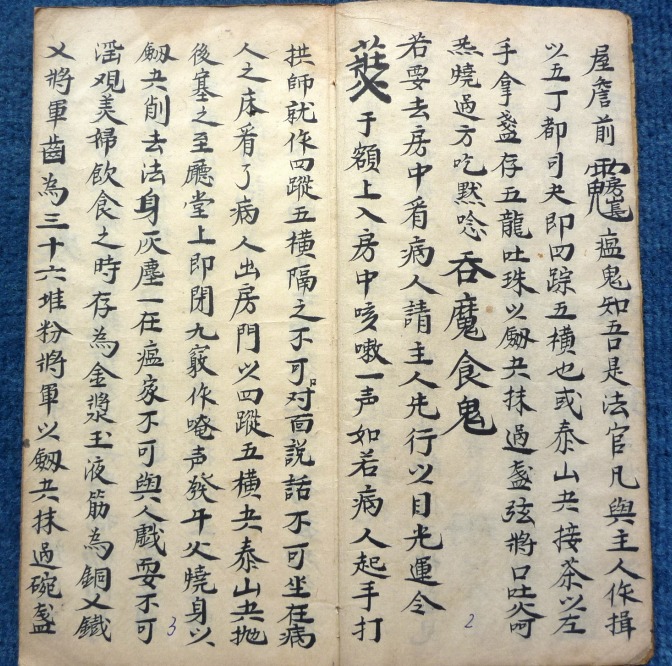 屋詹前 瘟鬼知吾是法官凡與主人作揖
以五丁都司夬即四踪五橫也或泰山夬接茶以左
手拿盞存五龍吐珠以劔夬抹過盞弦將口吐 呵
炁燒過方吃黙唸吞魔食鬼
若要去房中看病人請主人先行以目光運令
于額上入房中咳嗽一声如若病人起手打
拱師就作四蹤五橫隔之不可对面説話不可坐在病
人之床看了病人出房門以四蹤五橫夬泰山夬抛
後塞之至廳堂上即閉九竅作唵声發午火燒身以
劔夬削去法身灰塵一在瘟家不可與人戲耍不可
淫观美婦飲食之時存為金漿玉液筋為銅乂鐵
乂將軍齒為三十六堆粉將軍以劔夬抹過碗盞
2
3